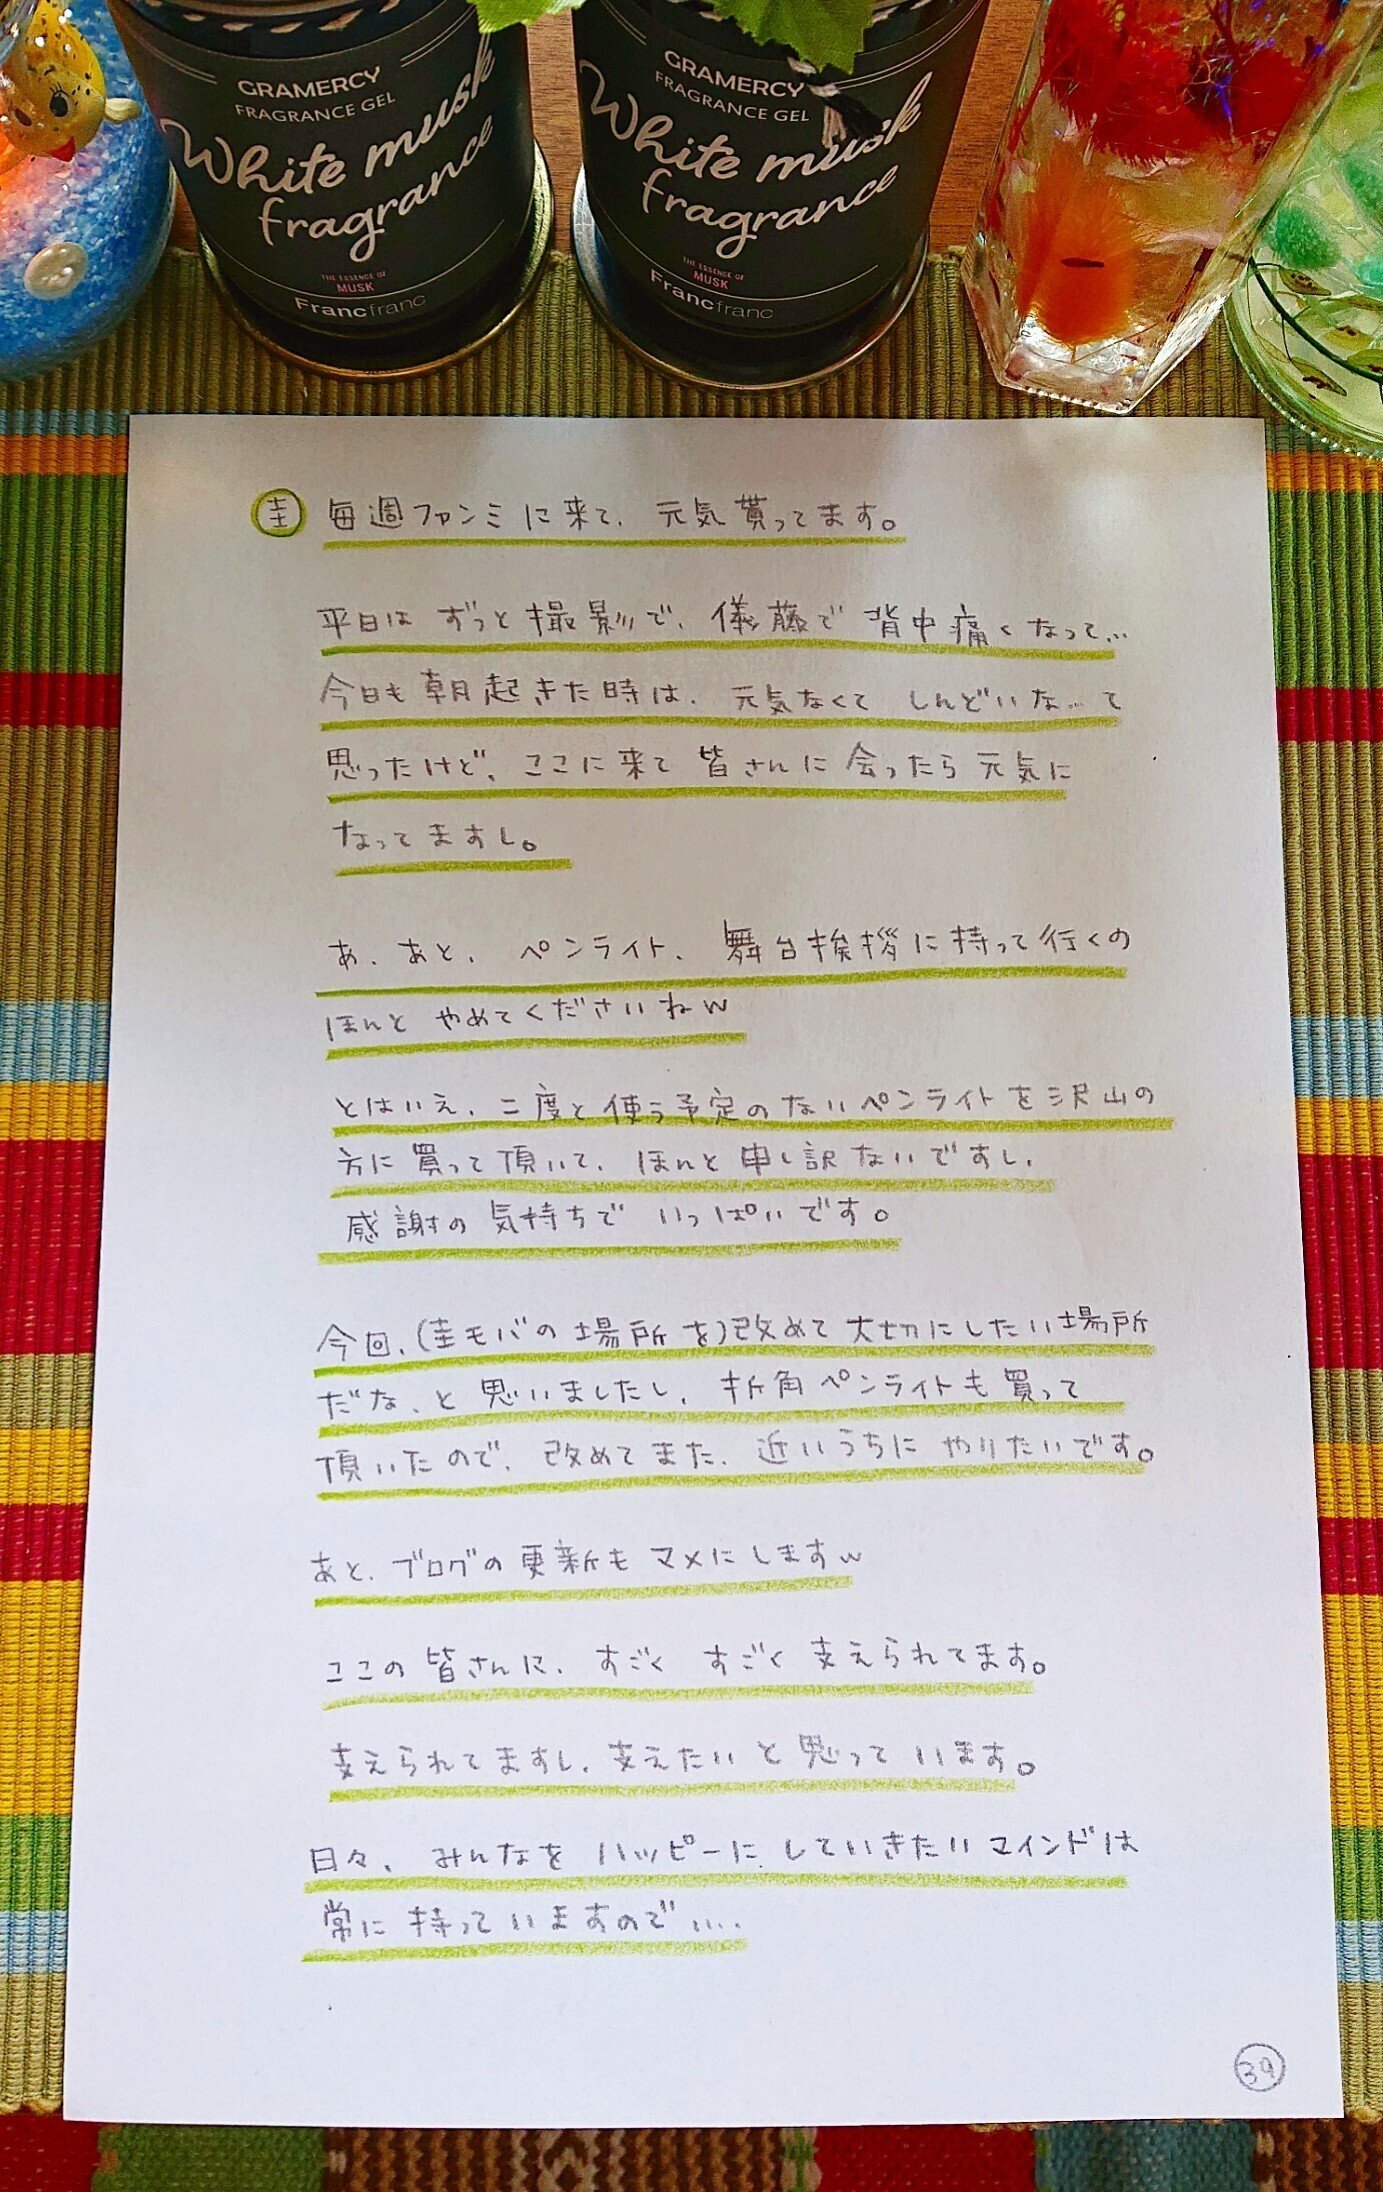 GRAMERCY
FRAGRANCE GEL
White musk
fragrance
THE ESSENCE OF
MUSK
Francfranc
GRAMERCY
FRAGRANCE GEL
White musk
fragrance
THE ESSENCE OF
MUSK
Francfranc
圭 毎週ファンミに来て、元気貰ってます。
平日はずっと撮影で、儀藤で背中痛くなって…
今日も朝起きた時は、元気なくてしんどいな…て
思ったけど、ここに来て皆さんに会ったら元気に
なってますし。
あ、あと、ペンライト、舞台挨拶に持って行くの
ほんとやめてくださいねw
とはいえ、二度と使う予定のないペンライトを沢山の
方に買って頂いて、ほんと申し訳ないですし、
感謝の気持ちでいっぱいです。
今回、(圭モバの場所を)改めて大切にしたい場所
だな、と思いましたし、折角ペンライトも買って
頂いたので、改めてまた、近いうちにやりたいです。
あと、ブログの更新もマメにしますw
ここの皆さんに、すごくすごく支えられてます。
支えられてますし、支えたいと思っています。
日々、みんなをハッピーにしていきたいマインドは
常に持っていますので…
39